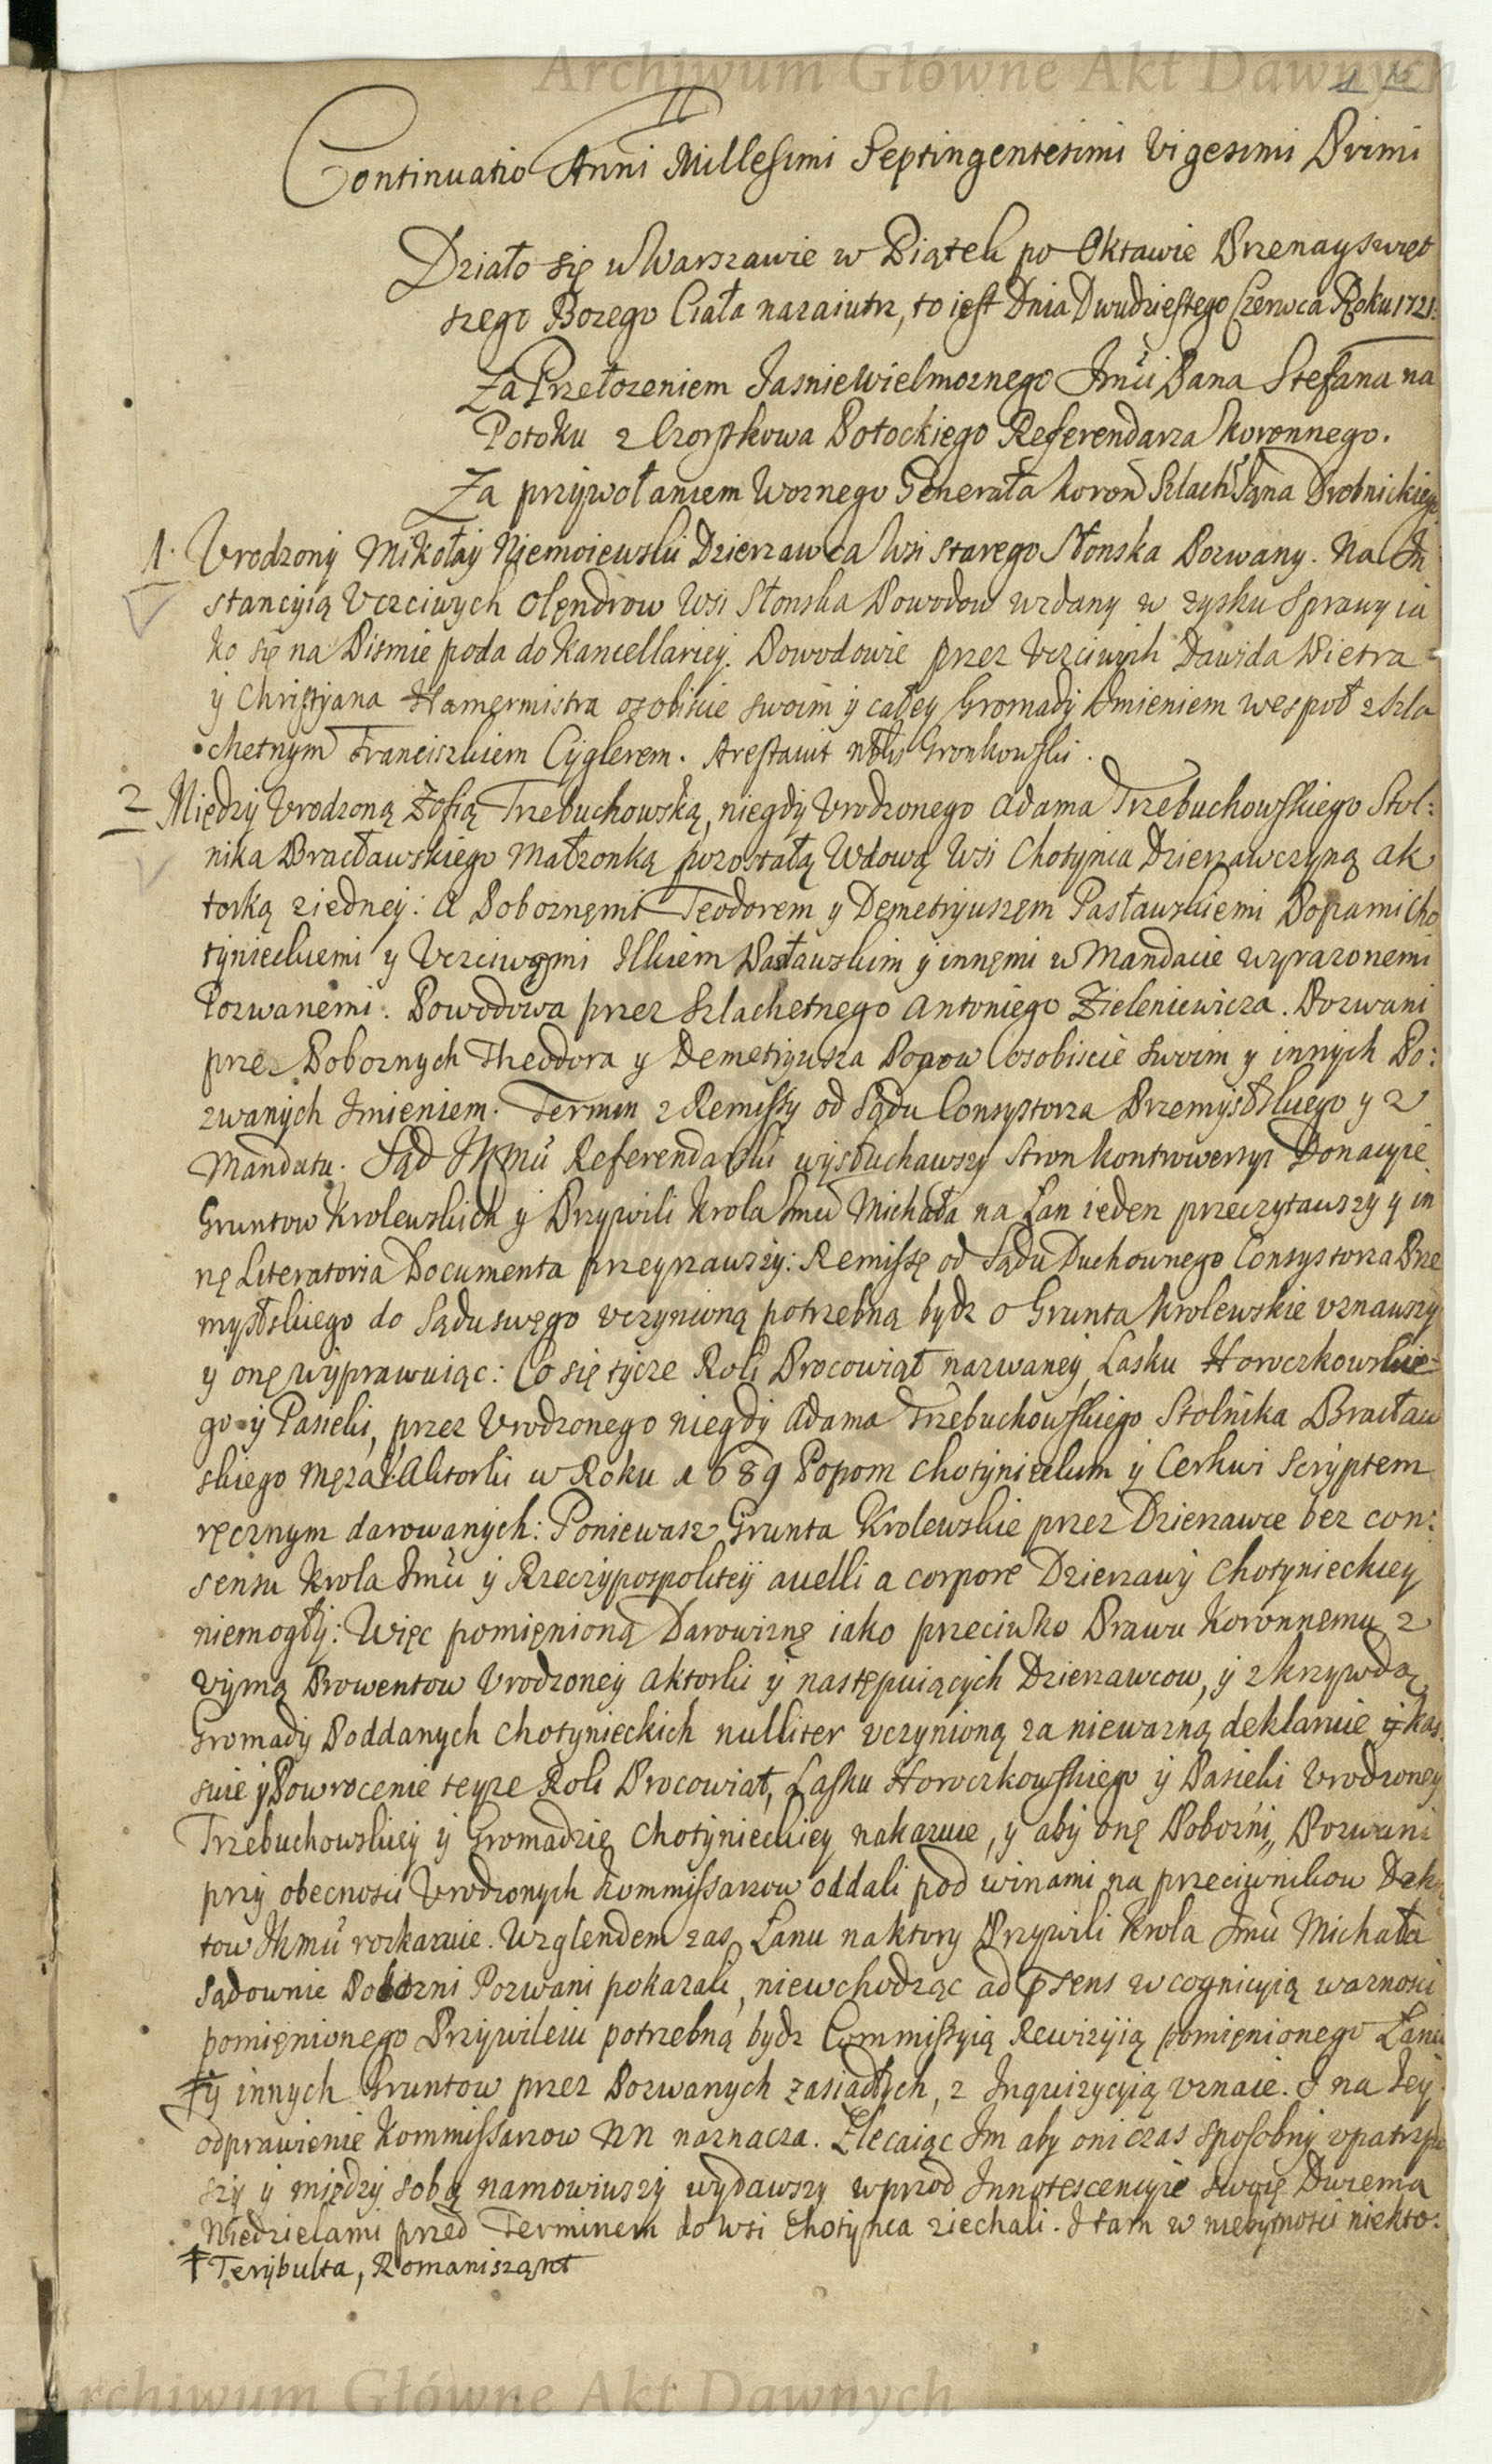 Archiwum Główne Akt Dawnych
1
Continuatio Anni Millesimi Septingentesimi Vigesimi Primi
Działo się w Warszawie w Piątek po Oktawie Przenayswięt
szego Bozego Ciała nazaiutrz, to iest Dnia Dwudziestego Czerwca Roku 1721.
Za Przełozeniem Jasnie Wielmoznego Jmci Pana Stefana na
Potoku z Czorstkowa Potockiego Referendarza Koronnego.
Za przywołaniem Woznego Generała Koron Szlach Jana Drobnickiego
1. Vrodzony Mikołay Niemoiewski Dzierzawca Wsi Starego Słonska Pozwany. Na In
stancyią Vczciwych Olędrow Wsi Słonska Powodow wzdany w zysku Sprawy ia
ko się na Pismie poda do Kancellaryey. Powodowie przez Vczciwych Dawida Pietra
y Chrystyana Hamermistra osobiscie swoim y całey Gromady Imieniem wespoł z Szla
chetnym Franciszkiem Cyglerem. Arestavit nblis Gronkowski.
2 Między Vrodzoną Zofią Trzebuchowską, niegdy Vrodzonego Adama Trzebuchowskiego Stol:
nika Bracławskiego Małzonką pozostałą Wdową Wsi Chotynia Dzierzawczyną Ak
torką ziedney: A Poboznęmi Teodorem y Demetryuszem Pasławskiemi Popami Cho
tynieckiemi y Vczciwęmi Ilkiem Pasławskim y innęmi w Mandacie wyrazonemi
Pozwanemi. Powodowa przez Szlachetnego Antoniego Zieleniewicza. Pozwani
przez Poboznych Theodora y Demetryusza Popow osobiscie swoim y innych Po:
zwanych Imieniem. Termin z Remissy od Sądu Consystorza Przemyslskiego y z
Mandatu. Sąd JKmci Referendarski wysłuchawszy Stron kontrowersyi Donacyie
Gruntow Krolewskich y Przywili Krola Jmci Michała na Łan ieden przeczytawszy y in
nę Literatoria Documenta przeyrzawszy: Remissę od Sądu Duchownego Consystorza Prze
myslskiego do Sądu swęgo vczynioną potrzebną bydz o Grunta Krolewskie vznawszy
y onę wyprawuiąc: Co się tycze Roli Procowiat nazwaney, Lasku Horoczkowskie:
go y Pasieki, przez Vrodzonego niegdy Adama Trzebuchowskiego Stolnika Bracław
skiego Męza Aktorki w Roku 1689 Popom Chotynieckim y Cerkwi Scryptem
ręcznym darowanych: Poniewasz Grunta Krolewskie przez Dzierzawcę bez con:
sensu Krola Jmci y Rzeczypospolitey auelli a corpore Dzierzawy Chotynieckiey
niemogły: Więc pomięnioną Darowiznę iako przeciwko Prawu Koronnemu z
vymą Prowentow Vrodzoney Aktorki y następuiących Dzierzawcow, y z krzywdą
Gromady Poddanych Chotynieckich nulliter vczynioną za niewazną deklaruie y kas
suie y Powrocenie teyze Roli Procowiat, Lasku Horoczkowskiego y Pasieki Vrodzoney
Trzebuchowskiey y Gromadzie Chotynieckiey nakazuie, y aby onę Pobozni Pozwani
przy obecnosci Vrodzonych Kommissarzow oddali pod winami na przeciwnikow Dekre
tow JKmci rozkazuie. Względem zas Łanu na ktory Przywili Krola Jmci Michała
Sądownie Pobozni Pozwani pokazali, niewchodząc ad psens w cognicyią waznosci
pomięnionego Przywileiu potrzebną bydz Commissyią Rewizyią pomięnionego Łanu
‡ y innych Gruntow przez Pozwanych zasiadłych, z Inquizycyią vznaie. I na Jey
odprawienie Kommissarzow NN naznacza. Zlecaiąc Im aby oni czas sposobny vpatrzyw
szy y między sobą namowiwszy wydawszy wprzod Innotescencyie swoię Dwiema
Niedzielami przed Terminem do Wsi Chotynca ziechali. I tam w niebytnosci niekto:
‡ Terybulta, Romanisząnt
Archiwum Główne Akt Dawnych